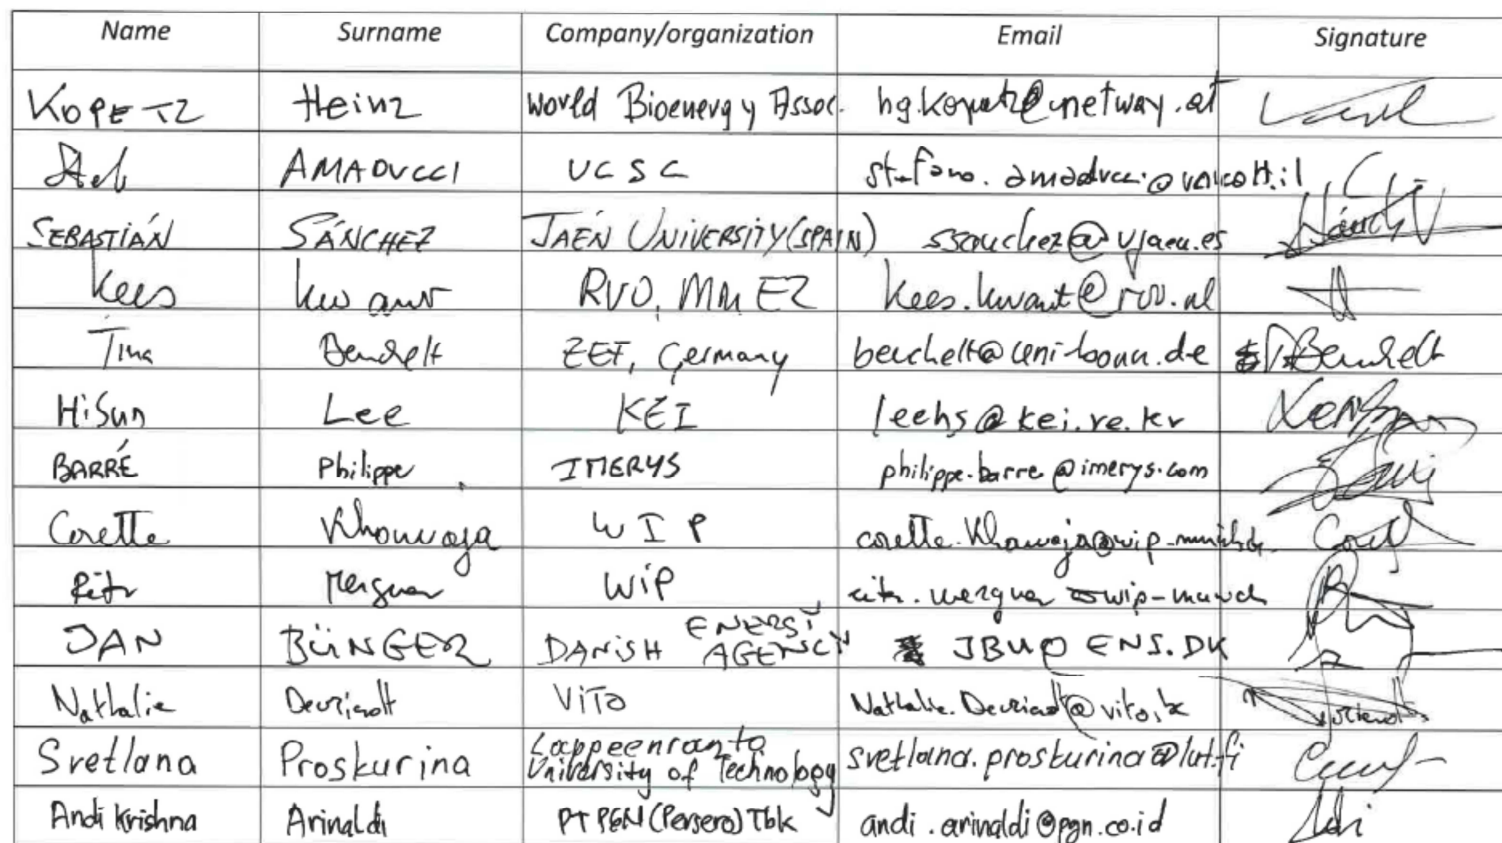 Name Surname Company/organization Email Signature
KOPETZ Heinz World Bioenergy Assoc. hg.kopetz@netway.at
AMADUCCI UCSC
SEBASTIÁN SÁNCHEZ JAÉN UNIVERSITY (SPAIN) ssanchez@ujaen.es Sánchez
Kees Kwant RVO, Min EZ kees.kwant@rvo.nl
Tina Beuchelt ZEF, Germany beuchelt@uni-bonn.de TBeuchelt
HiSun Lee KEI leehs@kei.re.kr
BARRÉ Philippe IMERYS philippe.barre@imerys.com
Corette Khawaja WIP
Rita Mergner WiP
JAN BÜNGER DANISH ENERGY AGENCY JBU@ENS.DK
Nathalie Devriendt ViTO Nathalie.Devriendt@vito.be
Svetlana Proskurina Lappeenranta
University of Technology svetlana.proskurina@lut.fi
Andi Krishna Arinaldi PT PGN (Persero) Tbk andi.arinaldi@pgn.co.id